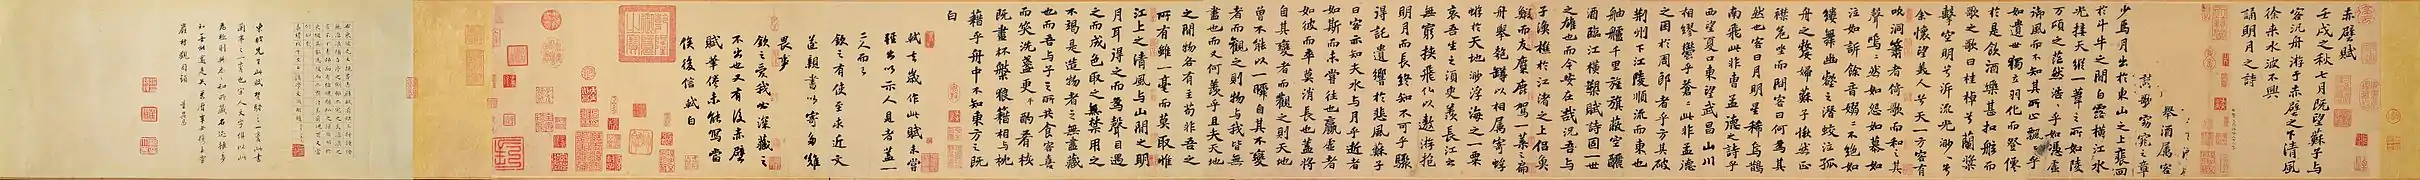 赤壁賦
壬戌之秋七月既望蘇子與
客泛舟游于赤壁之下清風
徐来水波不興
誦明月之詩
舉酒屬客
歌窈窕之章
少焉月出於東山之上裵回
於斗牛之間白露橫江水
光接天縱一葦之所如陵
萬頃之茫然浩浩乎如馮虛
御風而不知其所止飄飄乎
如遺世獨立羽化而登僊
於是飲酒樂甚扣舷而
歌之歌曰桂棹兮蘭槳
擊空明兮泝流光渺渺兮
余懷望美人兮天一方客有
吹洞簫者倚歌而和之其
聲嗚嗚然如怨如慕如
泣如訴餘音嫋嫋不絕如
縷舞幽壑之潜蛟泣孤
舟之嫠婦蘇子愀然正
襟危坐而問客曰何為其
然也客曰月明星稀烏鵲
南飛此非曹孟德之詩乎
西望夏口東望武昌山川
相繆鬱乎蒼蒼此非孟德
之困於周郎者乎方其破
荊州下江陵順流而東也
舳艫千里旌旗蔽空釃
酒臨江橫槊賦詩固一世
之雄也而今安在哉況吾與
子漁樵於江渚之上侶魚
鰕而友麋鹿駕一葉之扁
舟舉匏罇以相屬寄蜉
蝣於天地渺浮海之一粟
哀吾生之須臾羨長江之
無窮挾飛仙以遨游抱
明月而長終知不可乎驟
得託遺響於悲風蘇子
曰客亦知夫水與月乎逝者
如斯而未嘗往也贏虛者
如彼而卒莫消長也蓋將
自其變者而觀之則天地
曾不能以一瞬自其不變
者而觀之則物與我皆無
盡也而又何羨乎且夫天地
之間物各有主苟非吾之
所有雖一毫而莫取惟
江上之清風與山間之明
月耳得之而為聲目遇
之而成色取之無禁用之
不竭是造物者之無盡藏
也而吾與子之所共食客喜
而笑洗盞更酌肴核
既盡杯盤狼籍相与枕
藉乎舟中不知東方之既
白
軾去歲作此賦未嘗
輕出以示人見者蓋一
二人而已
欽之有使至求近文
遂親書以寄多難
畏事
欽之愛我必深藏之
不出也又有後赤壁
賦筆倦未能寫當
俟後信軾白
東坡先生此賦楚騷之一變此書
蘭亭之一變也宋人文字俱以此
為極則
董其昌